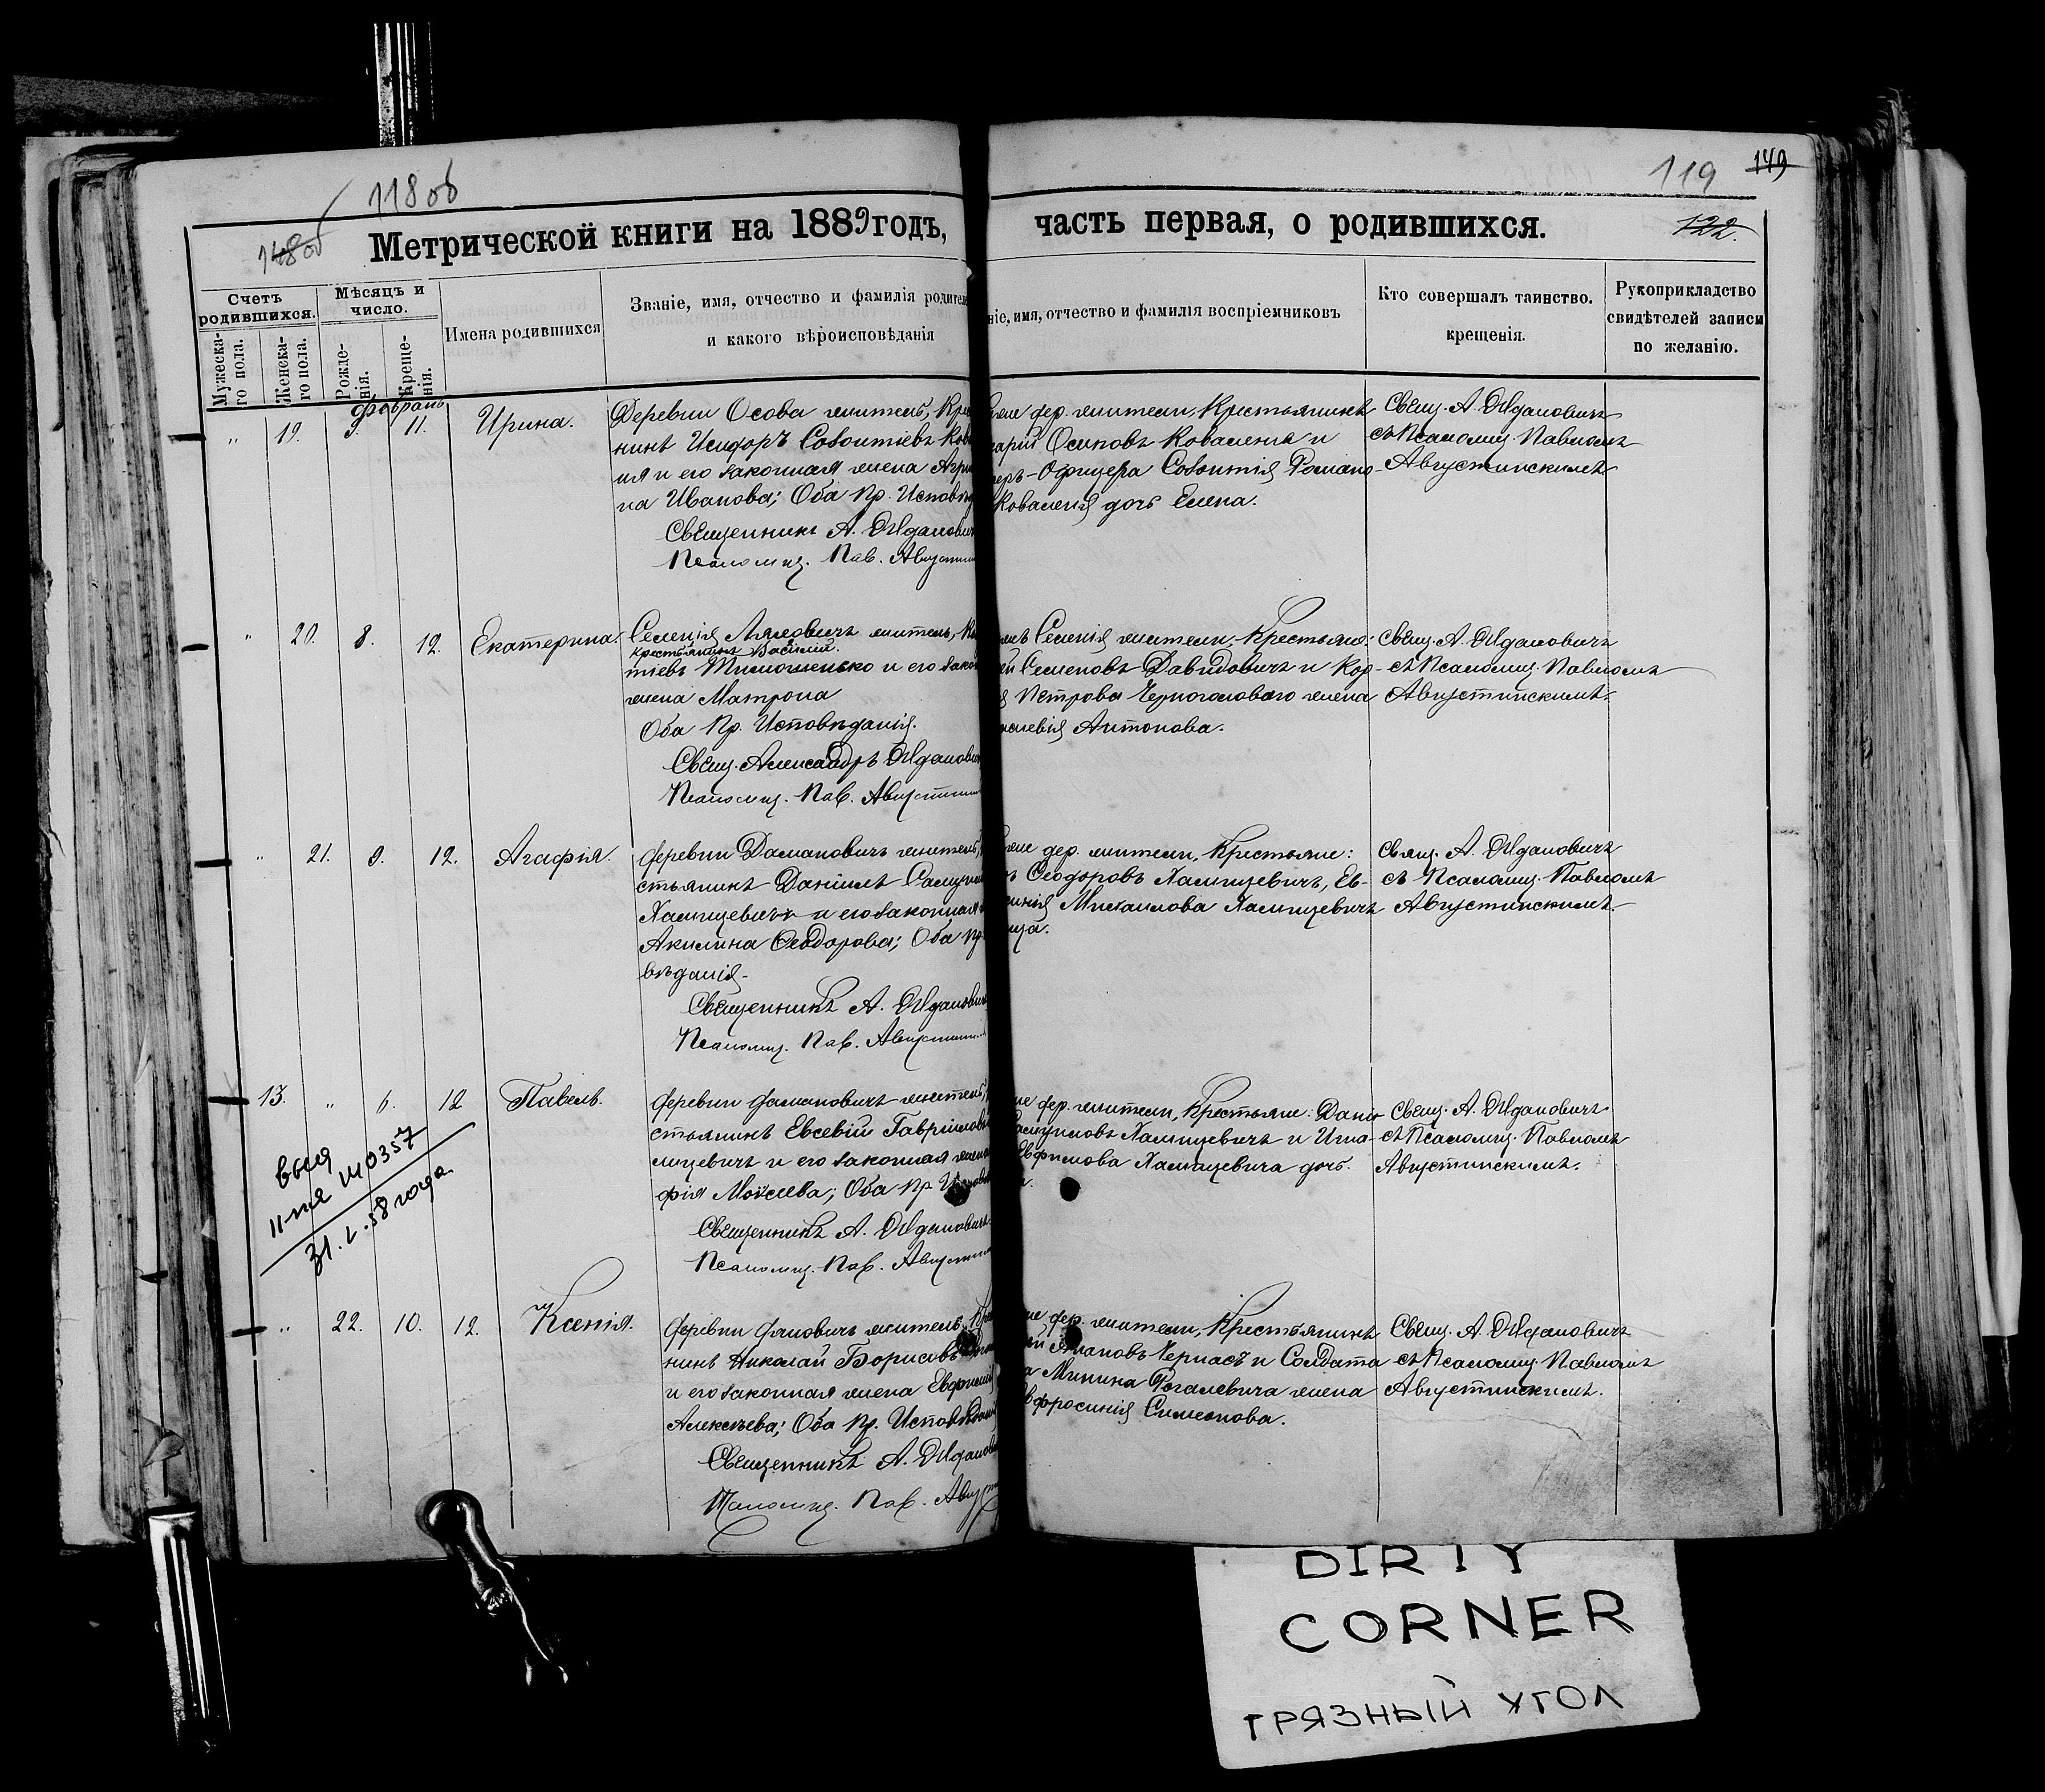 118об
119
149
148об
Метрической книги на 1889 годъ,
часть первая, о родившихся.
122.
Счетъ родившихся.
Мужеска-го пола.
Женска-го пола.
Мѣсяцъ и число.
Рожде-нія.
Креще-нія.
Имена родившихся
Званіе, имя, отчество и фамилія родител
и какого вѣроисповѣданія
ніе, имя, отчество и фамилія воспріемниковъ
Кто совершалъ таинство.
крещенія.
Рукоприкладство
свидѣтелей записи
по желанію.
Февраль
" 19. 11. Ирина.
Деревни Осова житель, Кре
нинъ Исидоръ Созонтіевъ Кова
ня и его законная жена Агри
на Иванова; Оба Пр. Исповѣд
Священникъ А. Ждановичъ
Псаломщ. Пав. Августин
дер. жители, Крестьянинъ
арій Осиповъ Коваленя и
теръ-Офицера Созонтія Романо-
Коваленя дочь Елена.
Свящ. А. Ждановичъ
съ Псаломщ. Павломъ
Августинскимъ
" 20. 8. 12. Екатерина.
Селенія Ляховичъ житель,
крестьянинъ Василій
тіевъ Тимошенько и его закон
жена Матрона
Оба Пр. Исповѣданія.
Свящ. Александръ Ждановичъ
Псаломщ. Пав. Августин
Селенія жители Крестьяне:
ей Семеновъ Давидовичъ и Кор-
Петрова Черноголоваго жена
Антонова.
Свящ. А. Ждановичъ
съ Псаломщ. Павломъ
Августинскимъ.
" 21. 9. 12. Агафія.
Деревни Дамановичъ житель,
стьянинъ Даніилъ Самуил
Халицевичъ и его законная
Акилина Ѳеодорова; Оба Пр
вѣданія.
Священникъ А. Ждановичъ
Псаломщ. Пав. Августин
дер. жители, Крестьяне:
Ѳеодоровъ Халицевичъ, Ев-
синія Михаилова Халицевичъ
ица.
Свящ. А. Ждановичъ
съ Псаломщ. Павломъ
Августинскимъ.
13. " 6. 12 Павелъ.
Деревни Дамановичъ житель,
стьянинъ Евсевій Гавріиловъ
лицевичъ и его законная жена
фія Моисеева; Оба Пр Исповѣ
Священникъ А. Ждановичъ
Псаломщ. Пав. Августин
дер. жители, Крестьяне: Дані
Самуиловъ Халицевичъ и Игна-
Евфимова Халицевича дочь.
Свящ. А. Ждановичъ
съ Псаломщ. Павломъ
Августинскимъ.
31.I.58 года.
" 22. 10. 12. Ксенія.
Деревни житель, Кре
нинъ Николай Борисовъ
и его законная жена Евфимія
Алексѣева; Оба Пр. Исповѣданія
Священникъ А. Ждановичъ
Псаломщ. Пав. Август
дер. жители, Крестьянинъ
Чернасъ и Солдата
Минина Рогалевича жена
вфросинія Симеонова.
Свящ. А. Ждановичъ
съ Псаломщ. Павломъ
Августинскимъ.
DIRTY
CORNER
ГРЯЗНЫЙ УГОЛ